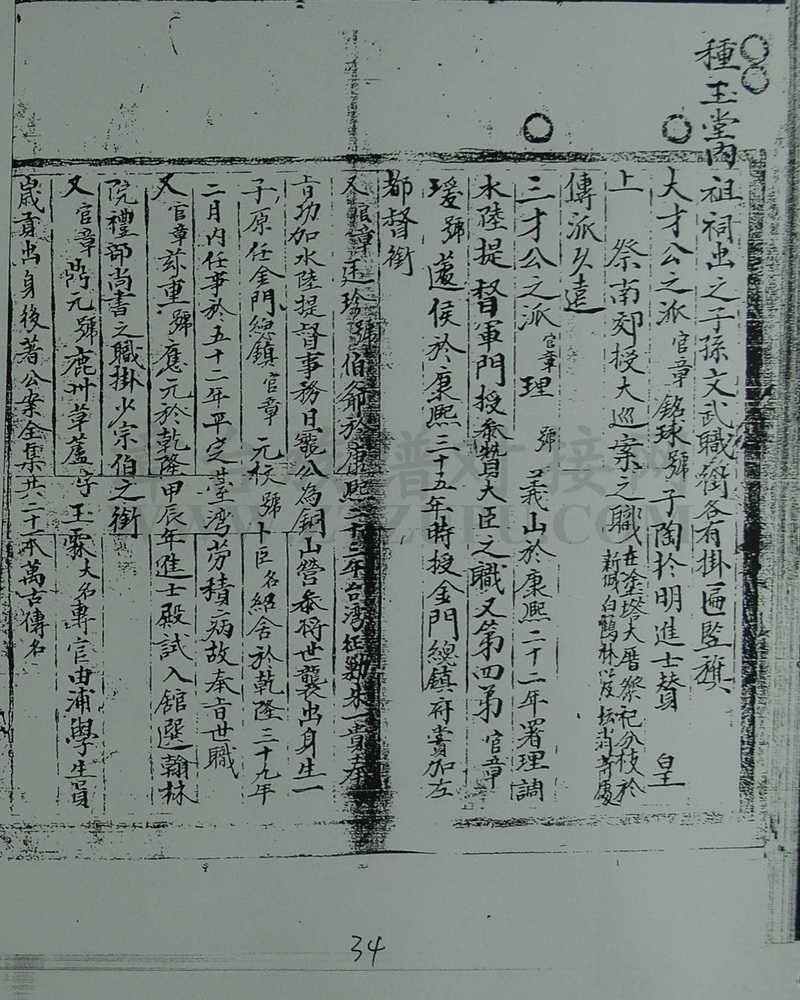 種玉堂內祖祠出之子孫文武職銜各有掛匾監旗
大才公之派官章銘球號子陶於明進士替 皇
上 祭南郊授大巡案之職在塗塝大厝祭祀分枝於新城白鶴林以及坛肖等處
傳派久遠
三才公之派官章理 號 義山於康熙二十二年署理調
水陸提督軍門授叅贊大臣之職又第四弟官章
瑗號 蘧侯於康熙三十五年時授金門總鎮府賞加左
都督銜
又官章廷珍號伯爺於康熙 年台湾征勦朱一貴奉
旨功加水陸提督事務日寵公為銅山營叅将世襲出身生一
子原任金門總鎮官章 元枚號卜臣名紹舍於乾隆三十九年
二月內任事於五十二年平定臺湾勞積病故奉旨世職
又官章兹重號應元於乾隆甲辰年進士殿試入舘選翰林
院禮部尚書之職掛少宗伯之銜
又官章鼎元號鹿州草蘆字玉霖大名專官由浦學生員
歲貢出身後著公案全集共二十一本萬古傳名
34